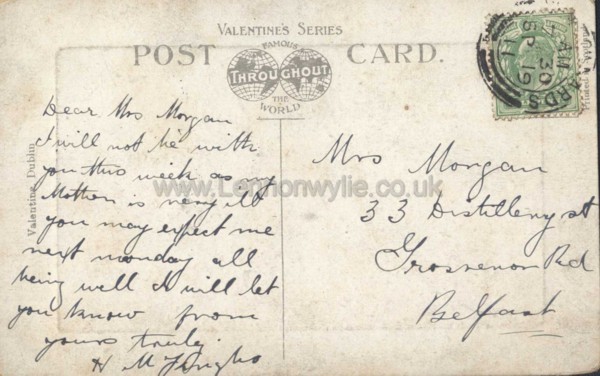 VALENTINE'S SERIES
POST CARD.
FAMOUS
THROUGHOUT
THE
WORLD
Valentine, Dublin
Dear Mrs Morgan
I will not be with
you this week as my
Mother is very ill
you may expect me
next monday all
being well I will let
you know from
yours truly
H M
Mrs Morgan
33 Distillery st
Grosvenor Rd
Belfast
www.Lennonwylie.co.uk
ARDS
SP 19
11